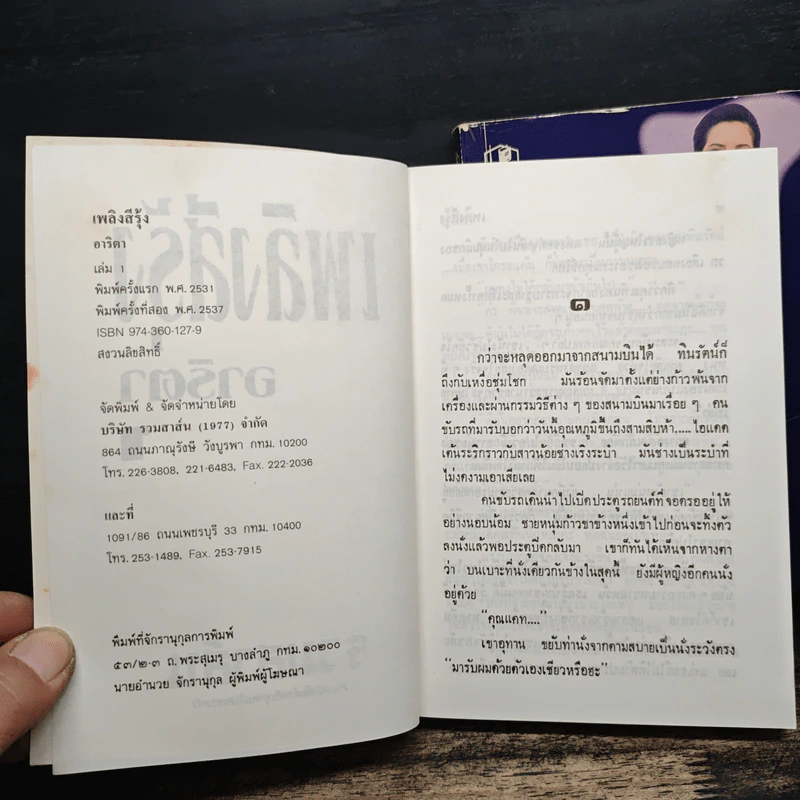 เพลิงสีรุ้ง
อาริตา
เล่ม 1
พิมพ์ครั้งแรก พ.ศ. 2531
พิมพ์ครั้งที่สอง พ.ศ. 2537
ISBN 974-360-127-9
สงวนลิขสิทธิ์
จัดพิมพ์ & จัดจำหน่ายโดย
บริษัท รวมสาส์น (1977) จำกัด
864 ถนนภาณุรังษี วังบูรพา กทม. 10200
โทร. 226-3808, 221-6483, Fax. 222-2036
และที่
1091/86 ถนนเพชรบุรี 33 กทม. 10400
โทร. 253-1489, Fax. 253-7915
พิมพ์ที่จักรานุกูลการพิมพ์
๕๓/๒-๓ ถ. พระสุเมรุ บางลำภู กทม. ๑๐๒๐๐
นายอำนวย จักรานุกูล ผู้พิมพ์ผู้โฆษณา
๑
กว่าจะหลุดออกมาจากสนามบินได้ ทินรัตน์ก็
ถึงกับเหงื่อชุ่มโชก มันร้อนจัดมาตั้งแต่ย่างก้าวพ้นจาก
เครื่องและผ่านกรรมวิธีต่าง ๆ ของสนามบินมาเรื่อย ๆ คน
ขับรถที่มารับบอกว่าวันนี้อุณหภูมิขึ้นถึงสามสิบห้า.....ไอแดด
เต้นระริกราวกับสาวน้อยช่างเริงระบำ มันช่างเป็นระบำที่
ไม่งดงามเอาเสียเลย
คนขับรถเดินนำไปเปิดประตูรถยนต์ที่จอดรออยู่ให้
อย่างนอบน้อม ชายหนุ่มก้าวขาข้างหนึ่งเข้าไปก่อนจะทิ้งตัว
ลงนั่งแล้วพอประตูปิดกลับมา เขาก็ทันได้เห็นจากหางตา
ว่า บนเบาะที่นั่งเดียวกันข้างในสุดนี้ ยังมีผู้หญิงอีกคนนั่ง
อยู่ด้วย
“คุณแคท....”
เขาอุทาน ขยับท่านั่งจากตามสบายเป็นนั่งระวังตรง
“มารับผมด้วยตัวเองเชียวหรือฮะ”